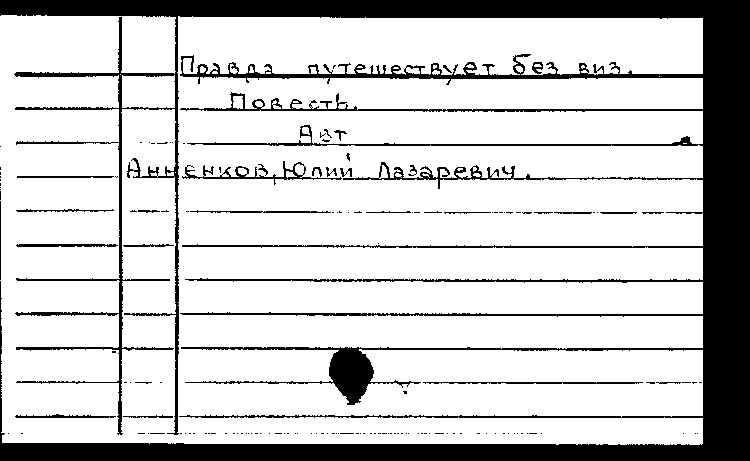 Правда путешествует без виз.
Повесть.
Авт
Анненков, Юлий Лазаревич.